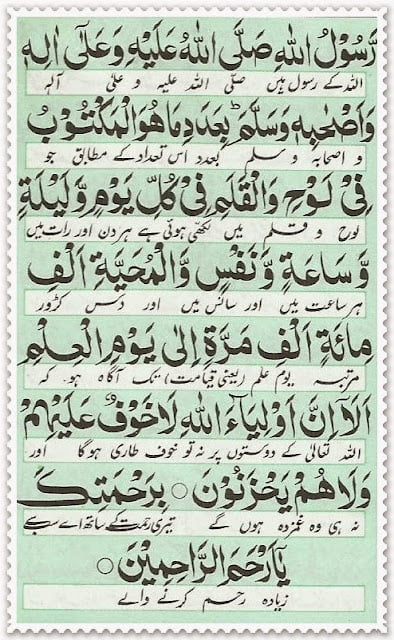 رَّسُوْلُ اللهِ صَلَّى اللهُ عَلَيْهِ وَعَلٰٓى اٰلِهٖ
اللہ کے رسول ہیں صلّی اللہ علیہ و علٰی آلہٖ
وَاَصْحَابِهٖ وَسَلَّمَ ط بِعَدَدِ مَا هُوَ الْمَكْتُوْبُ
و اصحابہ و سلم بعدد اس تعداد کے مطابق جو
فِيْ لَوْحٍ وَالْقَلَمِ فِيْ كُلِّ يَوْمٍ وَّلَيْلَةٍ
لوح و قلم میں لکھی ہوئی ہے ہر دن اور رات میں
وَّسَاعَةٍ وَّنَفْسٍ وَّالْمُحَيَّةِ اَلْفِ
ہر ساعت میں اور سانس میں اور دس کروڑ
مِائَةِ اَلْفِ مَرَّةٍ اِلٰى يَوْمِ الْعِلْمِ
مرتبہ یوم علم (یعنی قیامت) تک آگاہ ہو۔ کہ
اَلَآ اِنَّ اَوْلِيَآءَ اللهِ لَا خَوْفٌ عَلَيْهِمْ
اللہ تعالیٰ کے دوستوں پر نہ تو خوف طاری ہو گا اور
وَلَا هُمْ يَحْزَنُوْنَ ○ بِرَحْمَتِكَ
نہ ہی وہ غمزدہ ہوں گے تیری رحمت کے ساتھ اے سب سے
يَآ اَرْحَمَ الرَّاحِمِيْنَ ○
زیادہ رحم کرنے والے